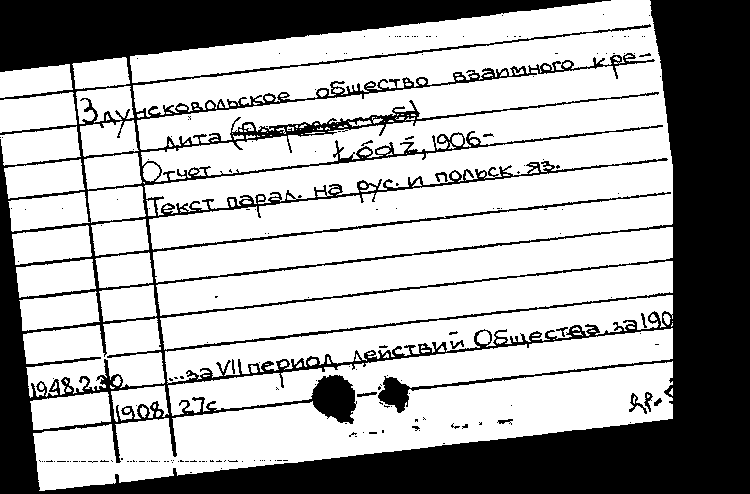 Здунсковольское общество взаимного кре-
дита
Отчет... Łódź, 1906-
Текст парал. на рус. и польск. яз.
...за VII период действий Общества за 190
1948.2.30.
1908. 27с.